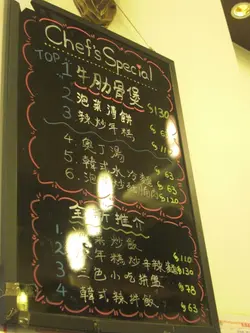 Chef's Special
TOP 1 牛肋骨煲 $130
2 泡菜薄餅 $
3 辣炒年糕 $ 6
4. 奧丁湯 $ 63
5. 韓式水冷麵 $
6. 泡菜炒 肉 $ 63
全新推介
1. 菜炒飯 $110
2. 年糕炒辛辣麵 $130
3. 色小吃拼盤 $78
4 韓式辣拌飯 $63